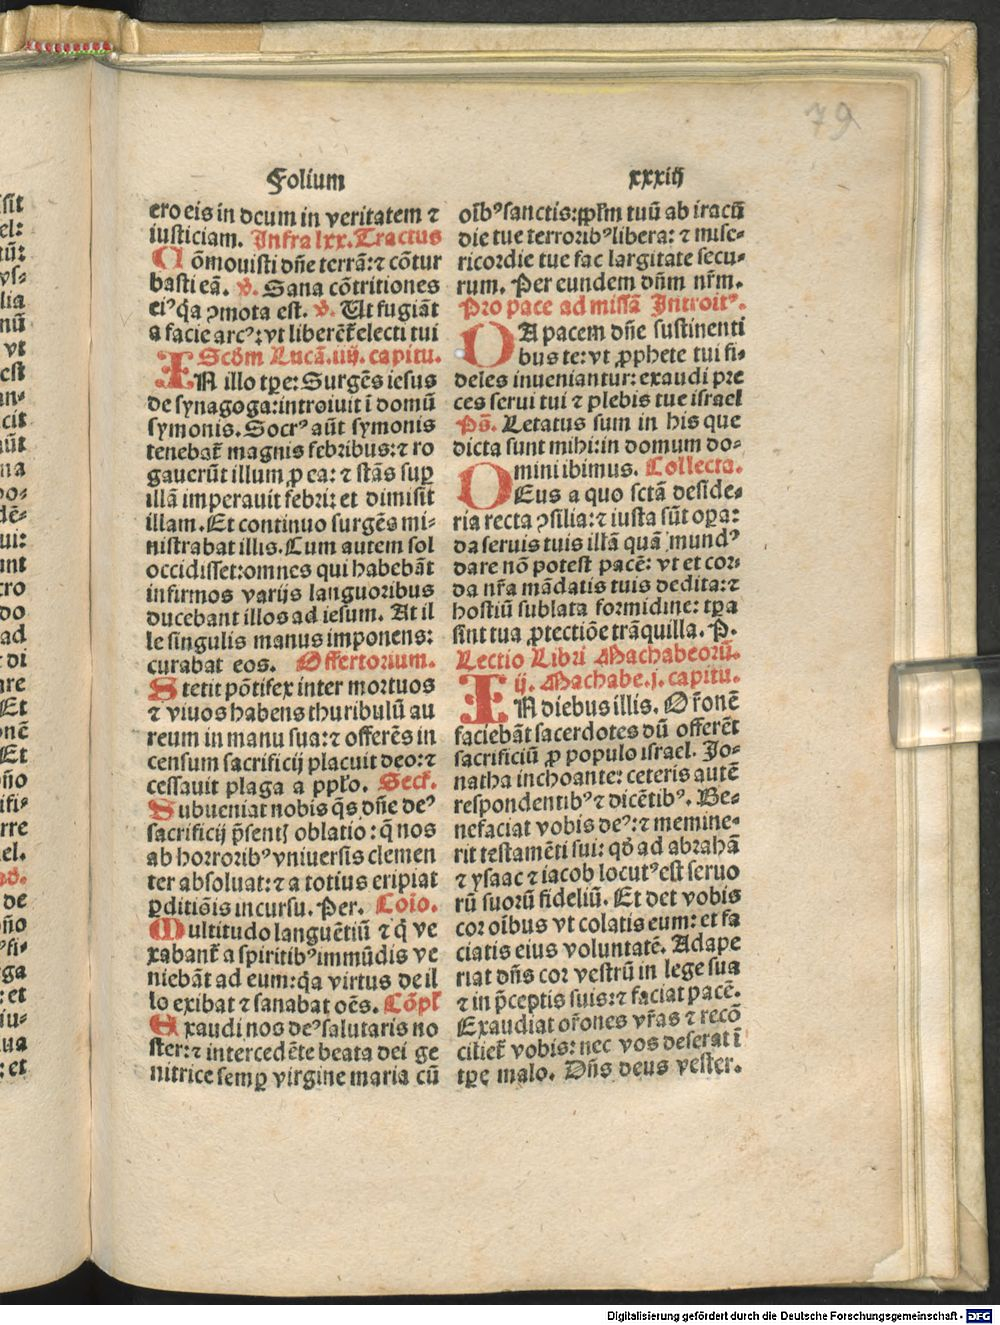 79
Folium xxxiij
ero eis in deum in veritatem ⁊
iusticiam. Infra lxx. Tractus
Cōmouisti dñe terrā:⁊ cōtur
basti eā. ꝟ. Sana cōtritiones
eiꝰ q̄a ꝯmota est. ꝟ. Ut fugiāt
a facie arcꝰ: vt liberēt᷑ electi tui
Scđm Lucā. iiij. capitu.
IN illo tꝑe: Surgēs iesus
de synagoga: introiuit ī domū
symonis. Socrꝰ aūt symonis
tenebat᷑ magnis febribus: ⁊ ro
gauerūt illum ꝓ ea: ⁊ stās suꝑ
illā imperauit febri: et dimisit
illam. Et continuo surgēs mi-
nistrabat illis. Cum autem sol
occidisset: omnes qui habebāt
infirmos varijs languoribus
ducebant illos ad iesum. At il
le singulis manus imponens:
curabat eos. Offertorium.
Stetit pōtifex inter mortuos
⁊ viuos habens thuribulū au
reum in manu sua: ⁊ offerēs in
censum sacrificij placuit deo: ⁊
cessauit plaga a ppło. Secꝶ.
Subueniat nobis q̄s dñe deꝰ
sacrificij p̄sentꝭ oblatio: q̄ nos
ab horroribꝰ vniuersis clemen
ter absoluat: ⁊ a totius eripiat
ꝑditiōis incursu. Per. Coīo.
Multitudo languētiū ⁊ q̇ ve
xabant᷑ a spiritibꝰ immūdis ve
niebāt ad eum: q̄a virtus de il
lo exibat ⁊ sanabat oēs. Cōpł
Exaudi nos deꝰ salutaris no
ster: ⁊ intercedēte beata dei ge
nitrice semꝑ virgine maria cū
oībꝰ sanctis: ppłm tuū ab iracū
die tue terroribꝰ libera: ⁊ mise-
ricordie tue fac largitate secu-
rum. Per eundem dn̄m nr̄m.
Pro pace ad missā Introitꝰ.
DA pacem dñe sustinenti
bus te: vt ꝓphete tui fi-
deles inueniantur: exaudi pre
ces serui tui ⁊ plebis tue israel
Ps̄. Letatus sum in his que
dicta sunt mihi: in domum do-
mini ibimus. Collecta.
DEus a quo sctā deside-
ria recta ꝯsilia: ⁊ iusta sūt oꝑa:
da seruis tuis illā quā mundꝰ
dare nō potest pacē: vt et cor-
da nr̄a mādatis tuis dedita: ⁊
hostiū sublata formidine: tꝑa
sint tua ꝓtectiōe trāquilla. P.
Lectio Libri Machabeorū.
ij. Machabe. j. capitu.
IN diebus illis. Or̄onē
faciebāt sacerdotes dū offerēt
sacrificiū ꝓ populo israel. Jo-
natha inchoante: ceteris autē
respondentibꝰ ⁊ dicētibꝰ. Be-
nefaciat vobis deꝰ: ⁊ memine-
rit testamēti sui: qđ ad abrahā
⁊ ysaac ⁊ iacob locutꝰ est seruo
rū suorū fideliū. Et det vobis
cor oībus vt colatis eum: et fa
ciatis eius voluntatē. Adape
riat dn̄s cor vestrū in lege sua
⁊ in p̄ceptis suis: ⁊ faciat pacē.
Exaudiat or̄ones vr̄as ⁊ recō
cilietꝰ vobis: nec vos deserat ī
tꝑe malo. Dn̄s deus vester.
Digitalisierung gefördert durch die Deutsche Forschungsgemeinschaft - DFG